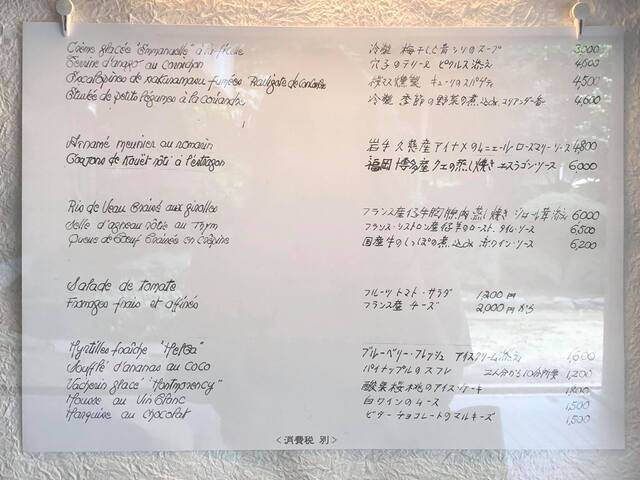 Crème glacée "Emmanuelle" à la ficelle 冷製 梅干しと青ジソのスープ 3,000
Terrine d'anago au cornichon 穴子のテリーヌ ピクルス添え 4,500
Escalopines de sakuramasu fumées 桜マス燻製 キューリのスパゲティ 4,500
Étuvée de petits légumes à la coriandre 冷製 季節の野菜の煮込み コリアンダー香 4,600
Ainamé meunier au romarin 岩手久慈産アイナメのムニエール ローズマリーソース 4,800
Gougons de Kouèt rôti à l'estragon 福岡 博多産クエの蒸し焼き エストラゴン・ソース 6,000
Ris de Veau braisé aux girolles フランス産仔牛胸腺肉蒸し焼き ジロール茸添え 6,000
Selle d'agneau rôtie au Thym フランス・シストロン産仔羊のロースト タイム・ソース 6,500
Queue de Bœuf Braisée en Crépine 国産牛のしっぽの煮込み 赤ワイン・ソース 6,200
Salade de tomate フルーツトマト・サラダ 1200円
Fromages frais et affinés フランス産 チーズ 2,000円から
Myrtilles fraîche "Melba" ブルーベリー・フレッシュ アイスクリーム添え 1,600
Soufflé d'ananas au coco パイナップルのスフレ 2人分から10分所要 1,200
Vacherin glacé "Montmorency" 酸果桜桃のアイス・ケーキ 1,800
Mousse au Vin Blanc 白ワインのムース 1,500
Marquise au chocolat ビターチョコレートのマルキーズ 1,500
<消費税 別>